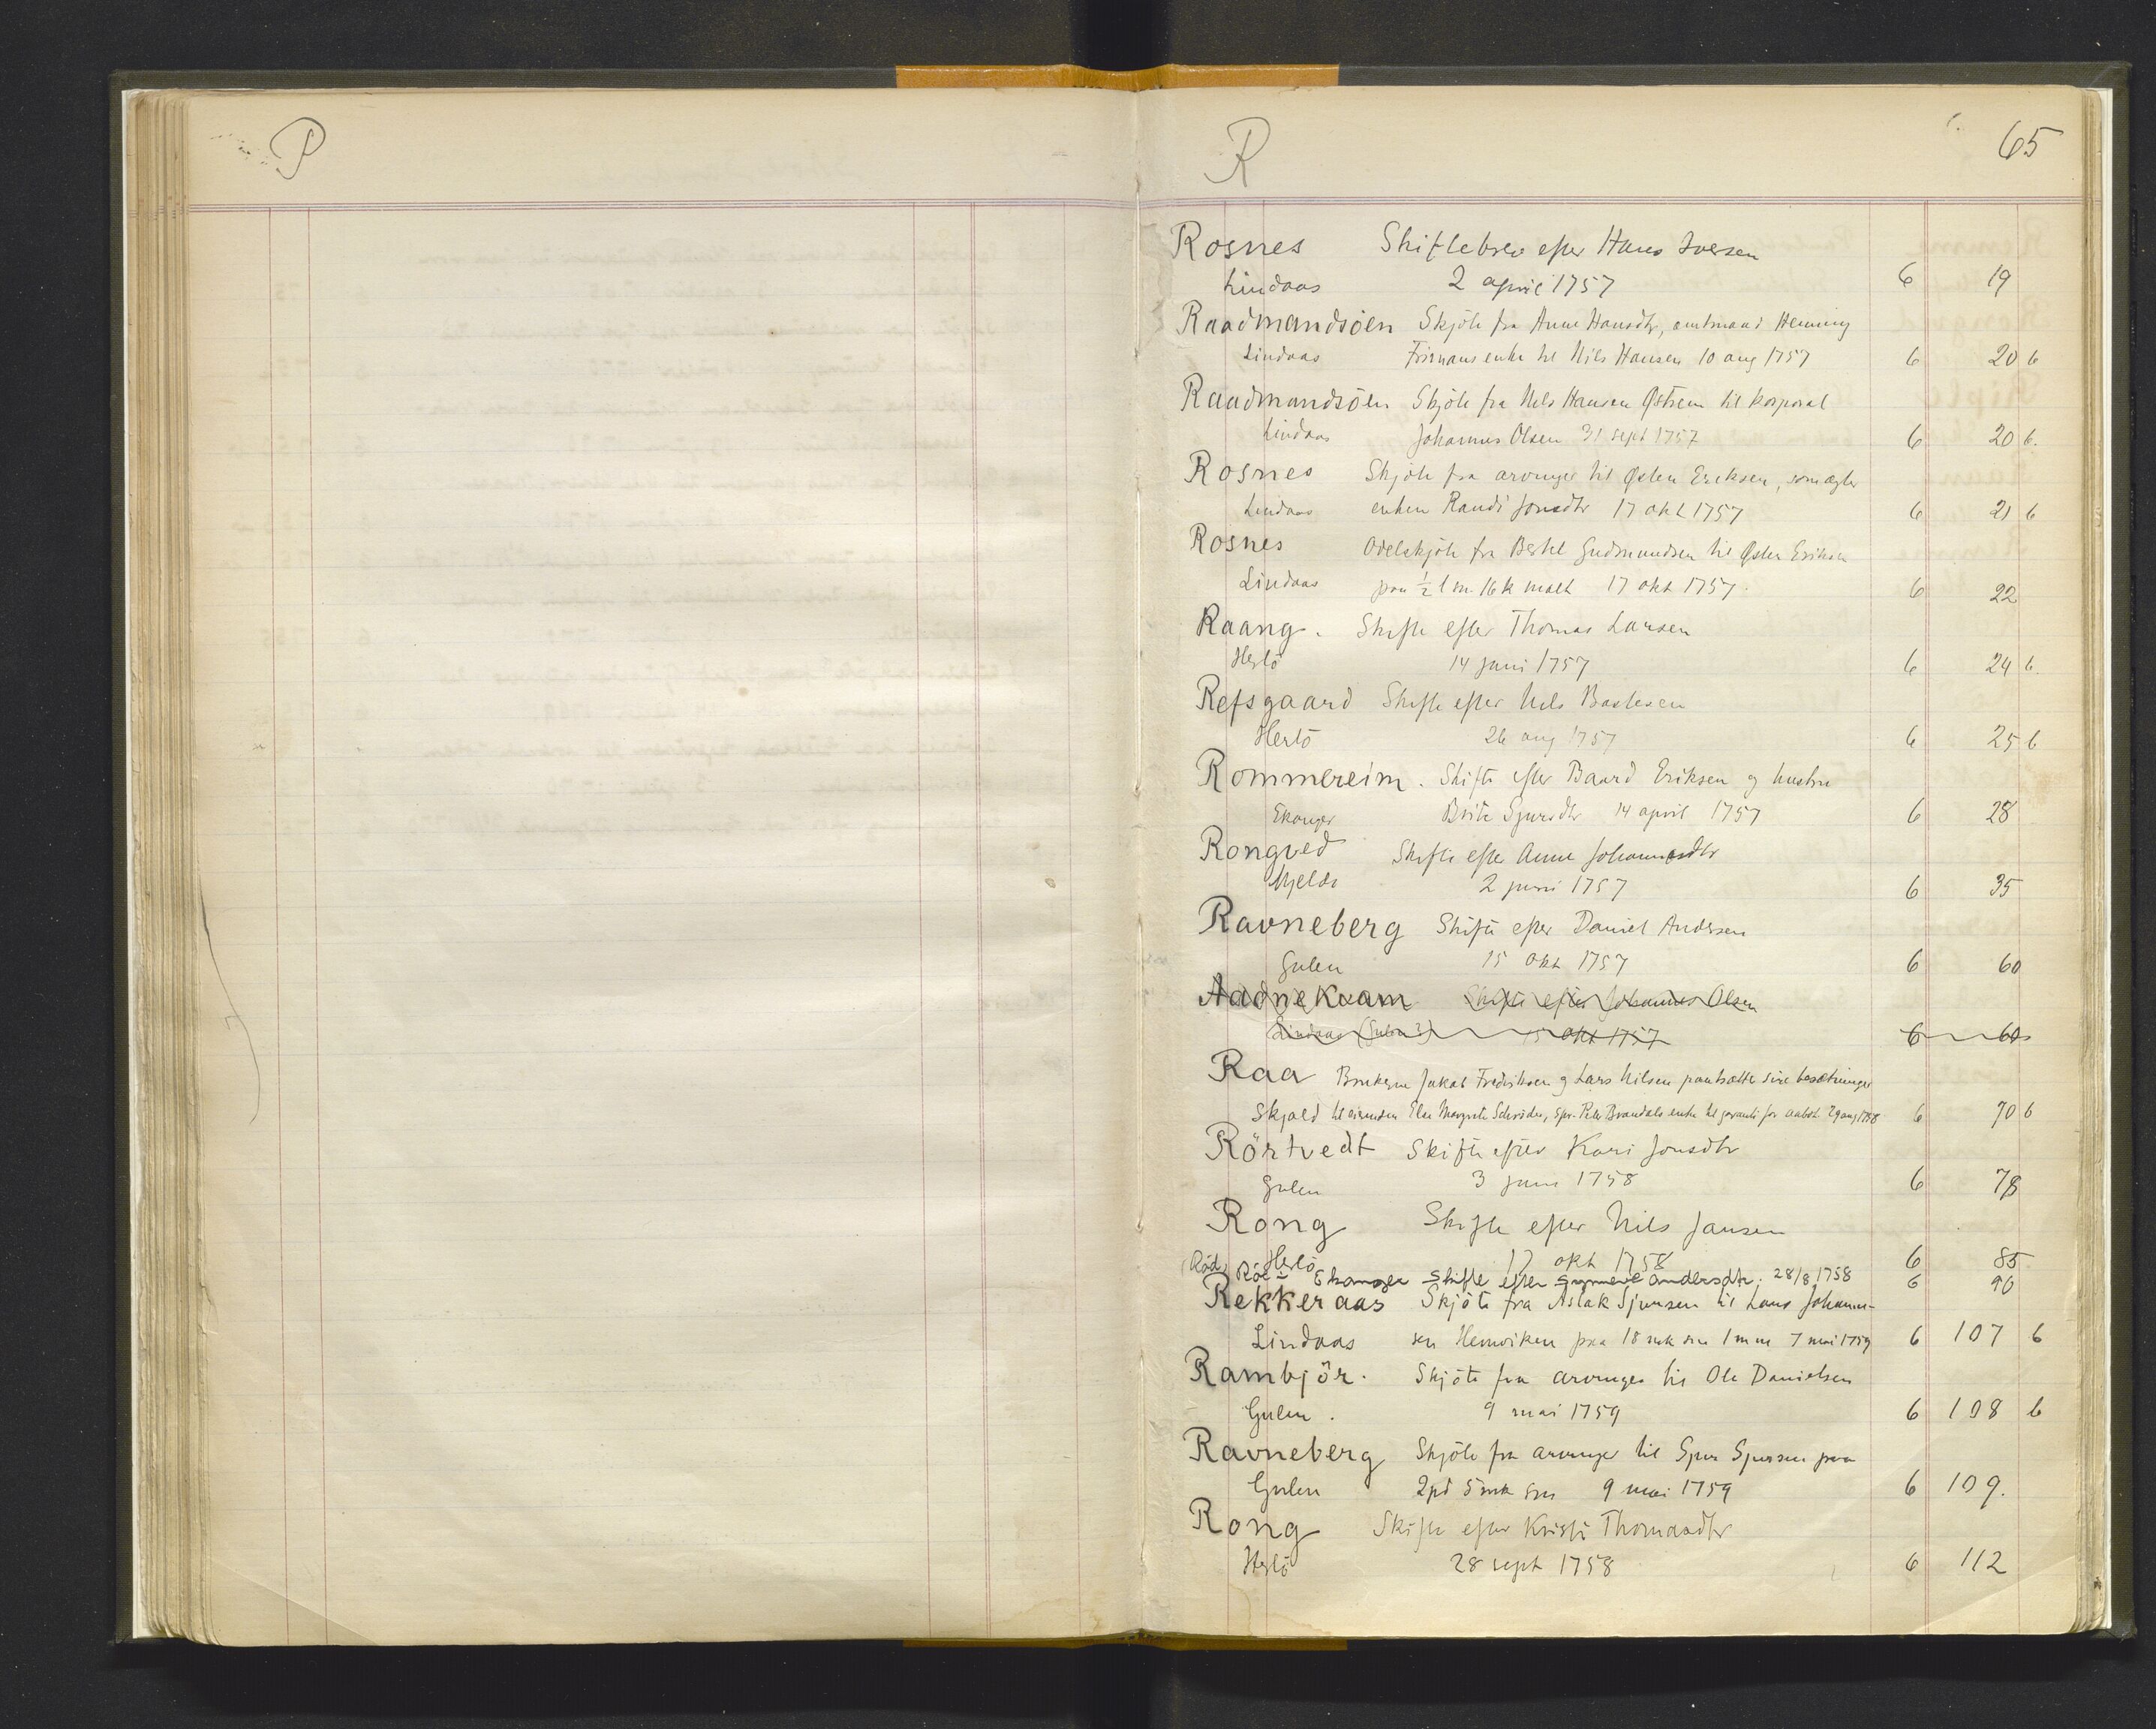 P
R
65
Rosnes Skiftebrev efter Hans Iversen
Lindaas 2 april 1757 6 19
Raadmandsöen Skjöte fra Anne Hansdtr, amtmand Henning
Lindaas Friimans enke til Nils Hansen 10 aug 1757 6 20 b
Raadmandsöen Skjöte fra Nils Hansen Østrem til korporal
Lindaas Johannes Olsen 31 sept 1757 6 20 b.
Rosnes Skjöte fra arvinger til Østen Eriksen, som ægter
Lindaas enken Randi Jonsdtr 17 okt 1757 6 21 b
Rosnes Odelskjöte fra Bertel Gudmundsen til Østen Eriksen
Lindaas paa ½ l m. 16 k malt 17 okt 1757. 6 22
Raang. Skifte efter Thomas Larsen
Herlö 14 juni 1757 6 24 b.
Refsgaard Skifte efter Nils Bastesen
Herlö 26 aug 1757 6 25 b
Rommereim. Skifte efter Baard Eriksen og hustru
Ekanger Brite Sjursdtr 14 april 1757 6 28
Rongved Skifte efter Anne Johannesdtr
Mjelde 2 juni 1757 6 35
Ravneberg Skifte efter Daniel Andersen
Gulen 15 okt 1757 6 60
Aadnekvam Skifte efter Johannes Olsen
Lindaas (Gulen?) 15 okt 1757 6 60
Raa Brukerne Jakob Fredriksen og Lars Nilsen pantsætter sine besætninger
Skjold til eiersken Else Margrete Schröder, Peter Brandals enke til garanti for aabot 29 aug 1758 6 70 b
Rörtvedt Skifte efter Kari Jonsdtr
Gulen 3 juni 1758 6 78
Rong Skifte efter Nils Jansen
Herlö 17 okt 1758 6 85
(Röd) Röe - Ekanger Skifte efter Synneve Andersdtr. 28/8 1758 6 90
Rekkeraas Skjöte fra Aslak Sjursen til Lars Johanne-
Lindaas sen Henviken paa 18 mk sm 1 m m 7 mai 1759 6 107 b
Rambjör. Skjöte fra arvinger til Ole Danielsen
Gulen. 9 mai 1759 6 108 b
Ravneberg Skjöte fra arvinger til Sjur Sjursen paa
Gulen 2 pd 5 mk sm 9 mai 1759 6 109.
Rong Skifte efter Kristi Thomasdtr
Herlö 28 sept 1758 6 112